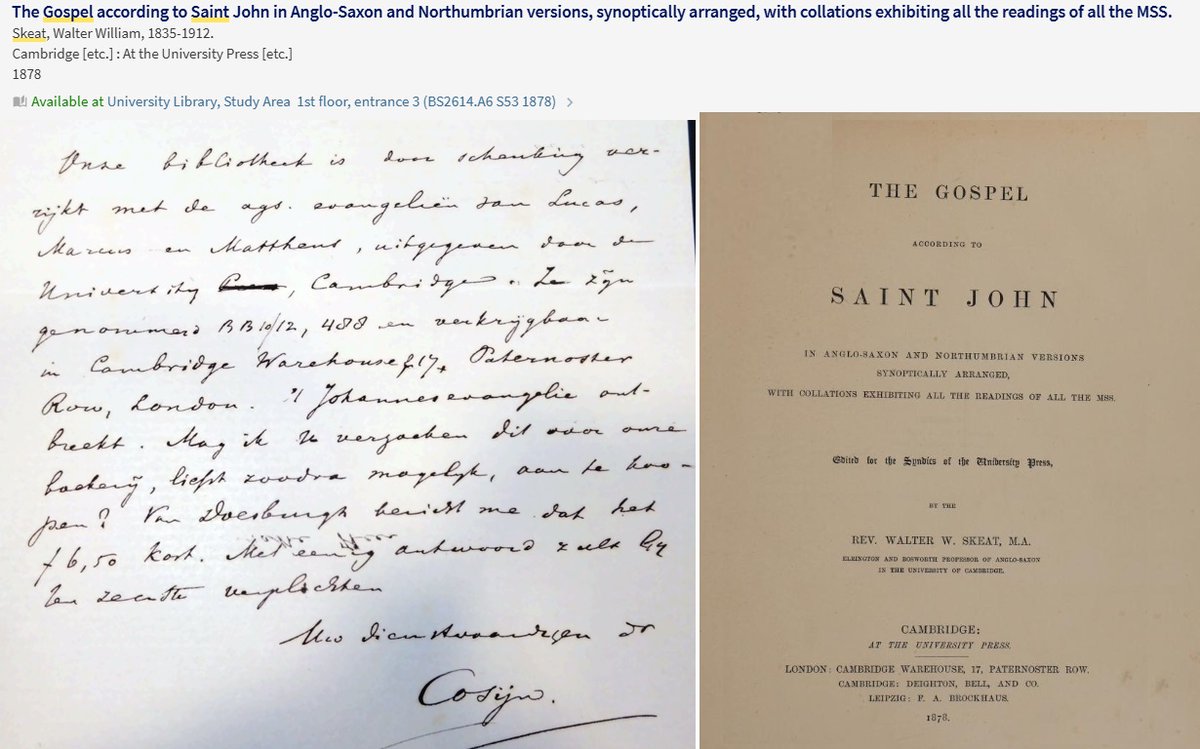 The Gospel according to Saint John in Anglo-Saxon and Northumbrian versions, synoptically arranged, with collations exhibiting all the readings of all the MSS.
Skeat, Walter William, 1835-1912.
Cambridge [etc.] : At the University Press [etc.]
1878
Available at University Library, Study Area 1st floor, entrance 3 (BS2614.A6 S53 1878)
Onze bibliotheek is door schenking ver-
rijkt met de ags. evangeliën van Lucas,
Marcus en Mattheus, uitgegeven door de
University , Cambridge. Ze zijn
genommerd BB 10/12, 488 en verkrijgbaar
in Cambridge Warehouse 17, Paternoster
Row, London. 't Johannesevangelie ont-
breekt. Mag ik U verzoeken dit voor onze
boekerij, liefst zoodra mogelijk, aan te koo-
pen? Van Doesburgh bericht me dat het
f 6,50 kost. Met eenig antwoord zult Gij
ten zeerste verplichten
Uw dienstvaardigen dr
Cosijn.
THE GOSPEL
ACCORDING TO
SAINT JOHN
IN ANGLO-SAXON AND NORTHUMBRIAN VERSIONS
SYNOPTICALLY ARRANGED,
WITH COLLATIONS EXHIBITING ALL THE READINGS OF ALL THE MSS.
Edited for the Syndics of the University Press,
BY THE
REV. WALTER W. SKEAT, M.A.
ELRINGTON AND BOSWORTH PROFESSOR OF ANGLO-SAXON
IN THE UNIVERSITY OF CAMBRIDGE.
CAMBRIDGE:
AT THE UNIVERSITY PRESS.
LONDON: CAMBRIDGE WAREHOUSE, 17, PATERNOSTER ROW.
CAMBRIDGE: DEIGHTON, BELL, AND CO.
LEIPZIG: F. A. BROCKHAUS.
1878.